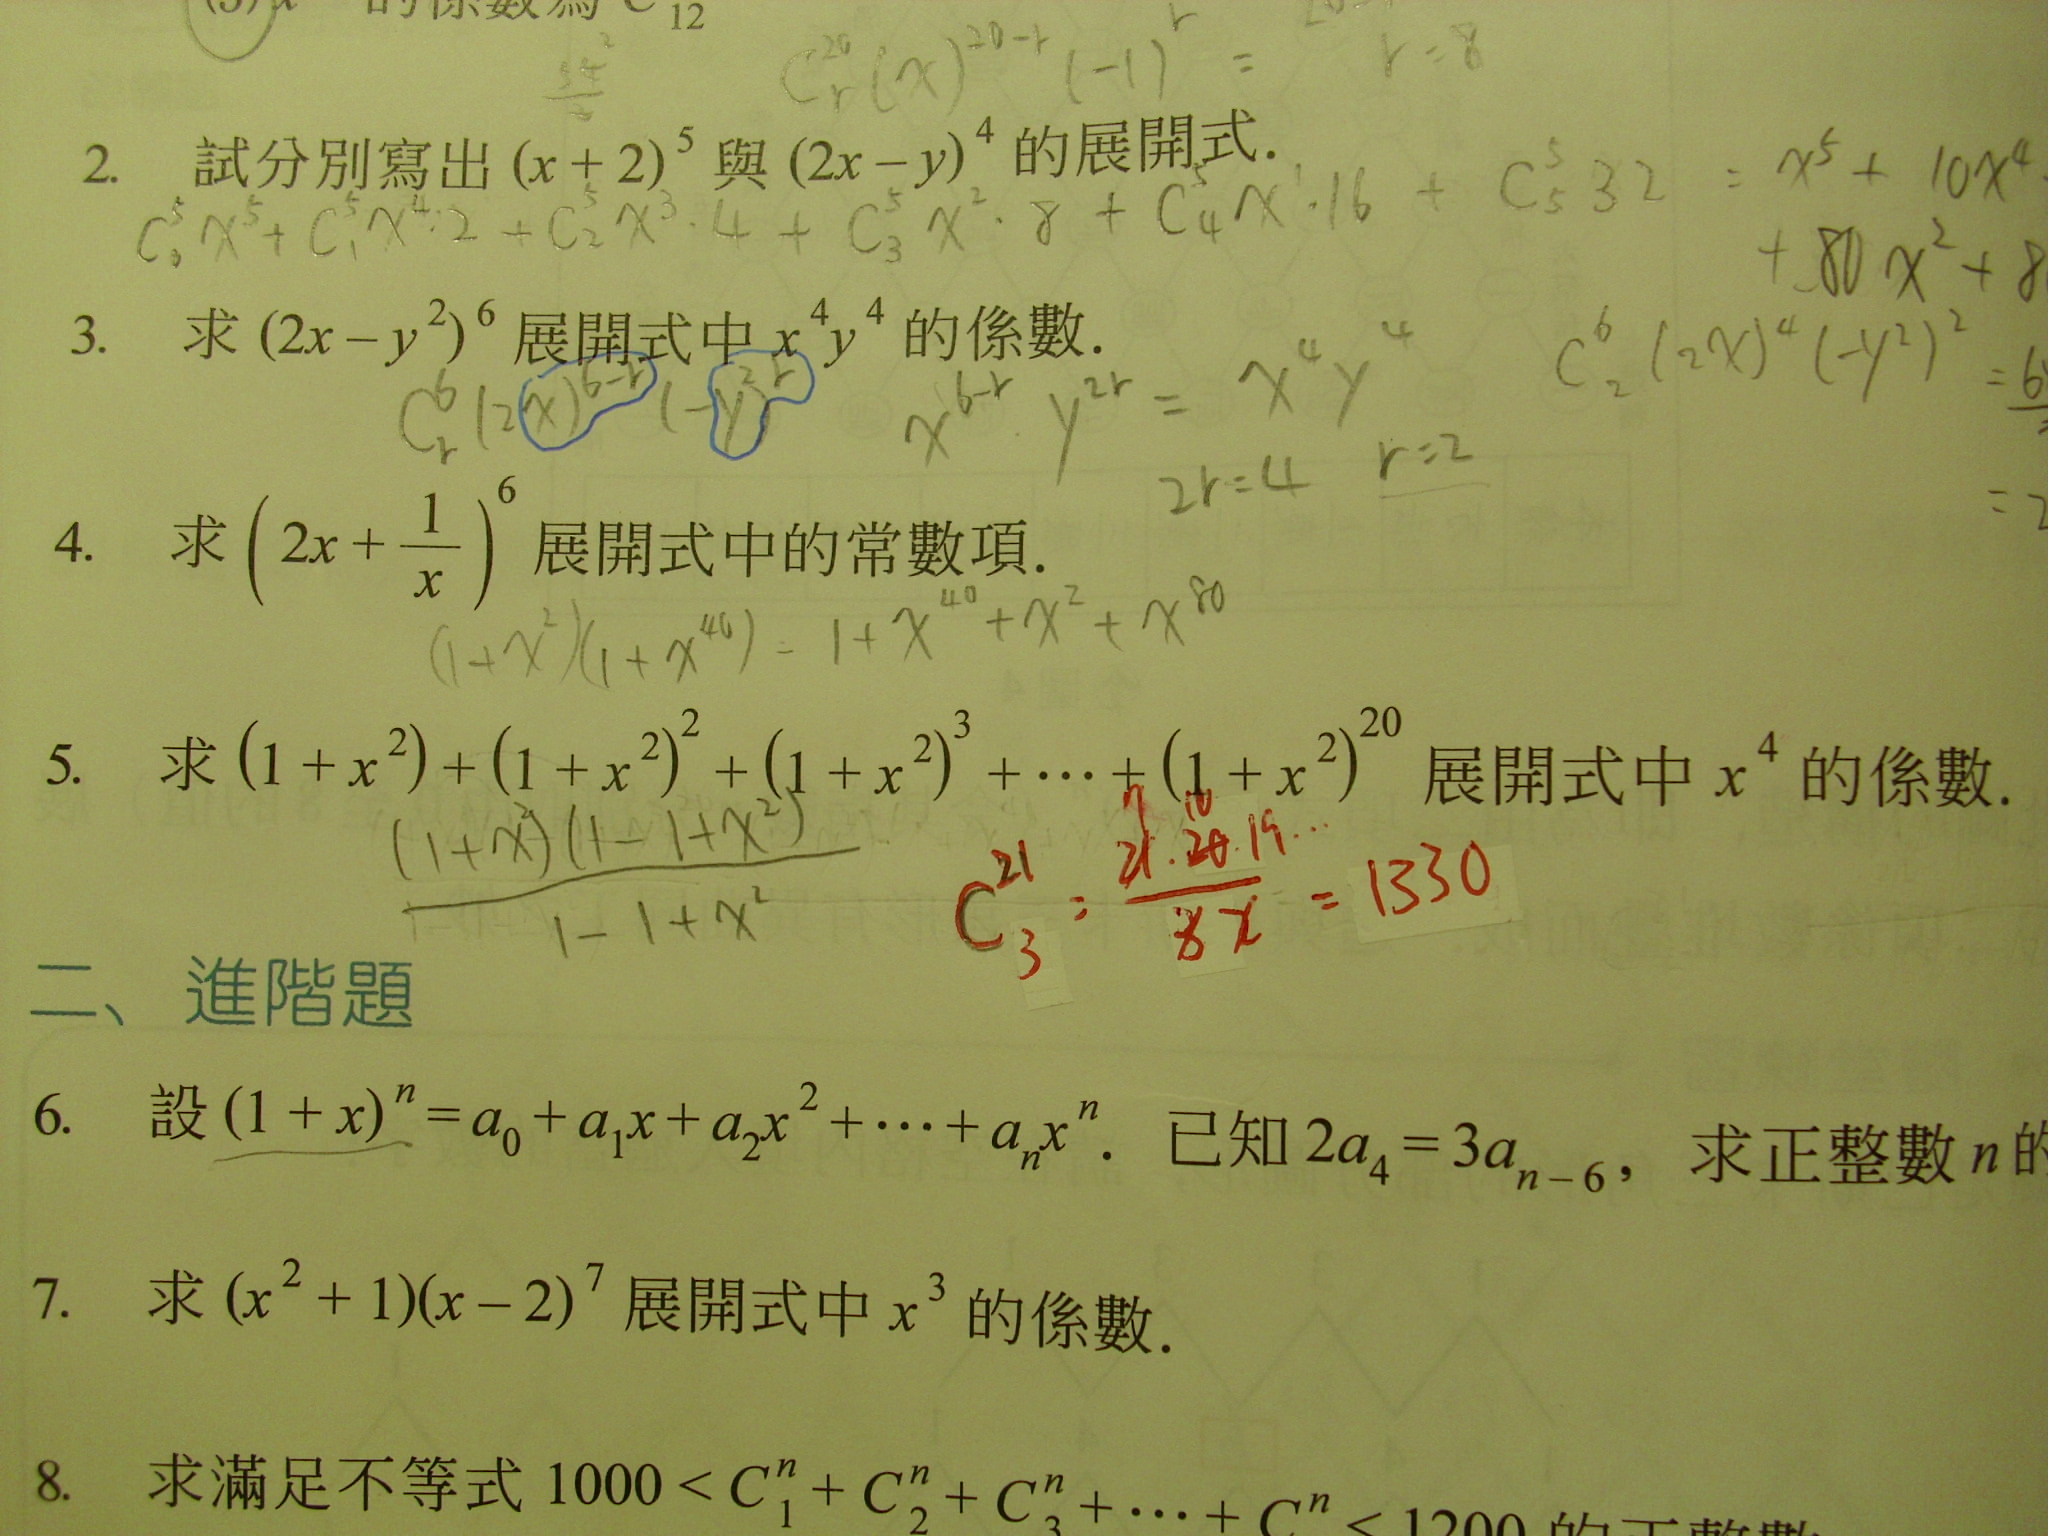 的係數為 C₁₂
C_r^{20} (x)^{20-r} (-1)^r = r=8
2. 試分別寫出 (x+2)⁵ 與 (2x-y)⁴ 的展開式.
C_0^5 x⁵ + C_1^5 x⁴·2 + C_2^5 x³·4 + C_3^5 x²·8 + C_4^5 x¹·16 + C_5^5 32 = x⁵ + 10x⁴
+ 80x² + 8
3. 求 (2x-y²)⁶ 展開式中 x⁴y⁴ 的係數.
C_r^6 (2x)^{6-r} (-y²)^r x^{6-r} · y^{2r} = x⁴y⁴
C_2^6 (2x)⁴ (-y²)² = 6
2r=4 r=2
= 2
4. 求 (2x + 1/x)⁶ 展開式中的常數項.
(1+x²)(1+x⁴⁰) = 1 + x⁴⁰ + x² + x⁸⁰
5. 求 (1+x²)+(1+x²)²+(1+x²)³+⋯+(1+x²)²⁰ 展開式中 x⁴ 的係數.
(1+x²)(1-1+x²)
1-1+x²
7 10
C_3^{21} = 21·20·19… / 3 2 = 1330
二、進階題
6. 設 (1+x)ⁿ = a₀ + a₁x + a₂x² + ⋯ + aₙxⁿ. 已知 2a₄ = 3a_{n-6}, 求正整數 n 的
7. 求 (x²+1)(x-2)⁷ 展開式中 x³ 的係數.
8. 求滿足不等式 1000 < C_1^n + C_2^n + C_3^n + ⋯ + C^n < 1200 的正整數